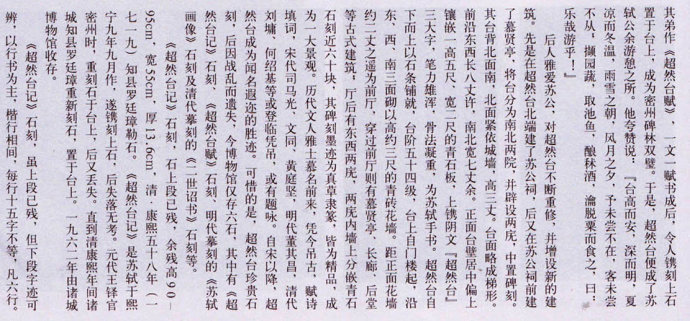 其弟作《超然台赋》，一文一赋书成后，令人镌刻上石
置于台上，成为密州碑林双璧。于是，超然台便成了苏
轼公余游憩之所。他夸赞说，『台高而安，深而明，夏
凉而冬温。雨雪之朝，风月之夕，予未尝不在，客未尝
不从。撷园蔬，取池鱼，酿秫酒，瀹脱粟而食之，曰：
乐哉游乎！』
后人雅爱苏公，对超然台不断重修，并增设新的建
筑。先是在超然台北端建了苏公祠，后又在苏公祠前建
了慕贤亭，将台分为南北两院，并辟设两庑，中置碑刻。
其台背北面南，北面紧依城墙，高三丈。台面略成梯形。
前沿东西长八丈许，南北宽七丈余。正面台壁居中偏上
镶嵌一高五尺、宽二尺的青石板，上镌阴文『超然台』
三大字，笔力雄浑，骨法凝重，为苏轼手书。超然台自
下而上以石条铺就，台阶五十四级，台上自门楼起，沿
东、西、南三面砌以高约三尺的青砖花墙。距正面花墙
约二丈之遥为前厅，穿过前厅则有慕贤亭、长廊、后堂
等古式建筑，厅后有东西两庑，两庑内墙上分嵌青石
石刻近六十块，其碑刻墨迹为真草隶篆，皆为精品，成
为一大景观。历代文人雅士慕名前来，凭今吊古，赋诗
填词。宋代司马光、文同、黄庭坚，明代董其昌，清代
刘墉、何绍基等或登临凭吊，或有题咏。自宋以降，超
然台成为闻名遐迩的胜迹。可惜的是，超然台珍贵石
刻，后因战乱而遗失，今博物馆仅存六石，其中有《超
然台记》石刻、《超然台赋》石刻、明代摹刻的《苏轼
画像》石刻及清代摹刻的《二世诏书》石刻等。
《超然台记》石刻，石上段已残，余残高90—
95cm，宽55cm，厚13.6cm，清·康熙五十八年（一
七一九）知县罗廷璋勒石。《超然台记》是苏轼于熙
宁九年九月作，遂镌刻上石，后失落无考。元代王铎官
密州时，重刻石于台上，后又丢失。直到清康熙年间诸
城知县罗廷璋重新刻石，置于台上。一九六二年由诸城
博物馆收存。
《超然台记》石刻，虽上段已残，但下段字迹可
辨，以行书为主，楷行相间，每行十五字不等，凡六行。